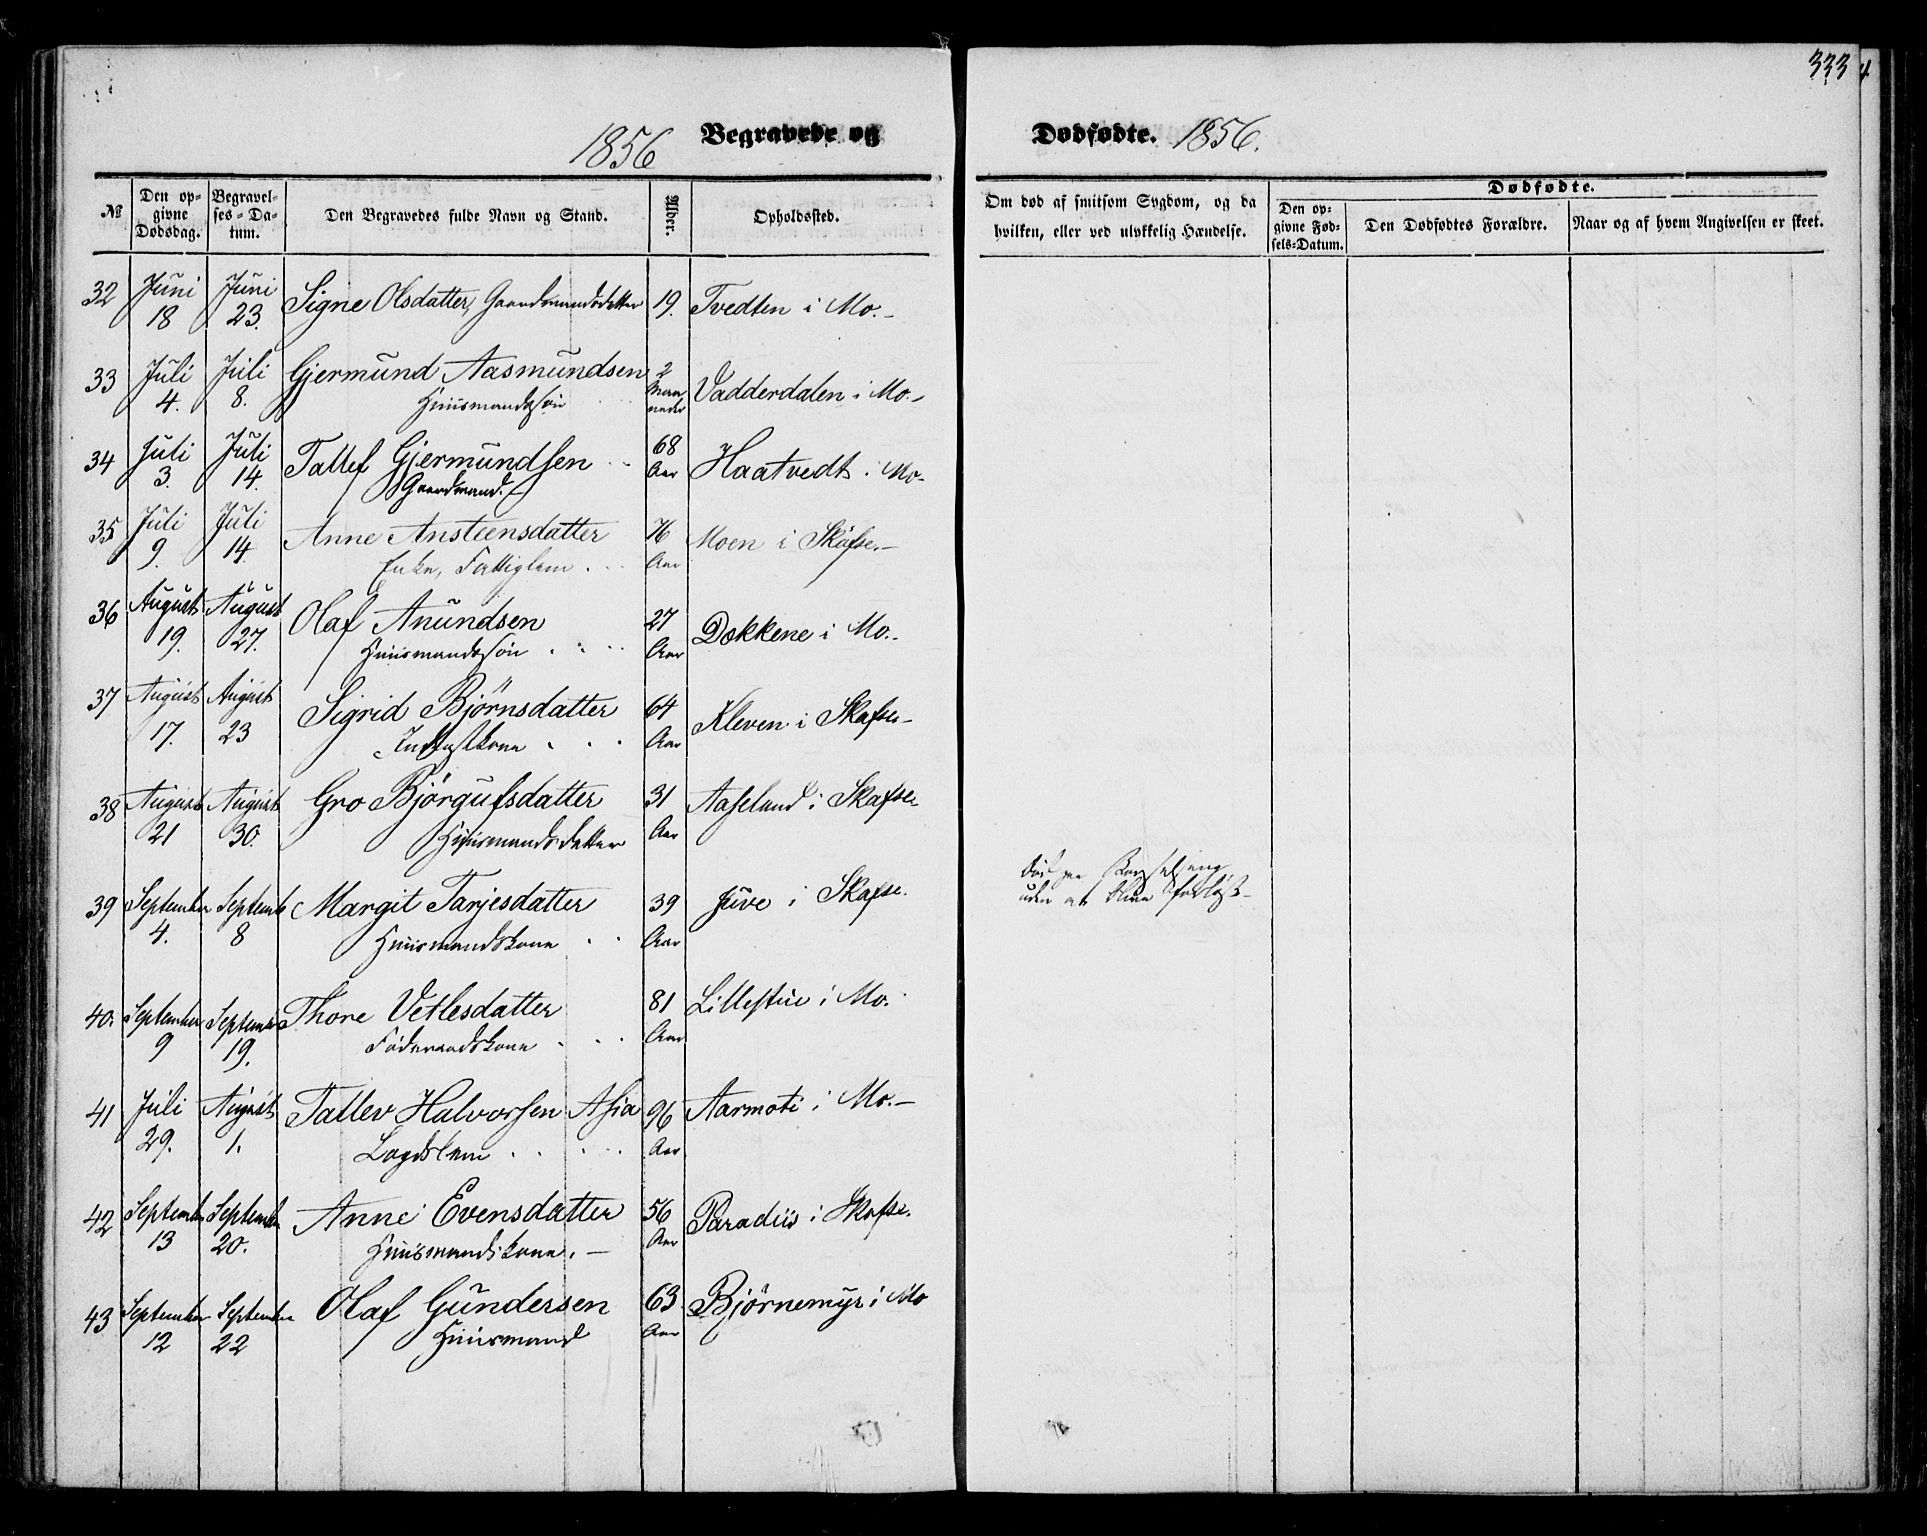 333
4
1856 Begravede og Dødfødte. 1856.
№ Den opgivne Dødsdag. Begravelses-Datum. Den Begravedes fulde Navn og Stand. Alder. Opholdssted. Om død af smitsom Sygdom, og da hvilken, eller ved ulykkelig Hændelse. Dødfødte. Den opgivne Fødsels-Datum. Den Dødfødtes Forældre. Naar og af hvem Angivelsen er skeet.
32 Juni 18 Juni 23. Signe Olsdatter, Gaardmandsdatter 19. Tvedten i Mo.-
33 Juli 4. Juli 8. Gjermund Aasmundsen 2 Maaneder Vadderdalen i Mo.-
Huusmandssøn
34 Juli 3. Juli 14. Tallef Gjermundsen 68 Aar Haatvedt i Mo-
Gaardmand.-
35 Juli 9. Juli 14. Anne Ansteensdatter 76 Aar Moen i Skafse.-
Enke, Fattiglem
36 August 19. August 27. Olaf Anundsen 27 Aar Dokkene i Mo.-
Huusmandssøn
37 August 17. August 23 Sigrid Bjørnsdatter 64 Aar Kleven i Skafse-
Inderstkone
38 August 21 August 30. Gro Bjørgufsdatter 31 Aar Aaseland i Skafse
Huusmandsdatter
39 September 4. Septemb 8 Margit Tarjesdatter 39 Aar Juve i Skafse.
Huusmandskone
død paa Barselseng
uden at blive forløst-
40. September 9 September 19. Thone Vetlesdatter 81 Aar Lillestue i Mo.
Føderaadskone
41 Juli 29. August 1. Tallev Halvorsen Asia 96 Aar Aarmoti i Mo.-
Lægdslem
42 September 13 September 20. Anne Evensdatter 56 Aar Paradiis i Skafse.
Huusmandskone.-
43 September 12 September 22 Olaf Gundersen 63 Aar Bjørnemyr i Mo
Huusmand